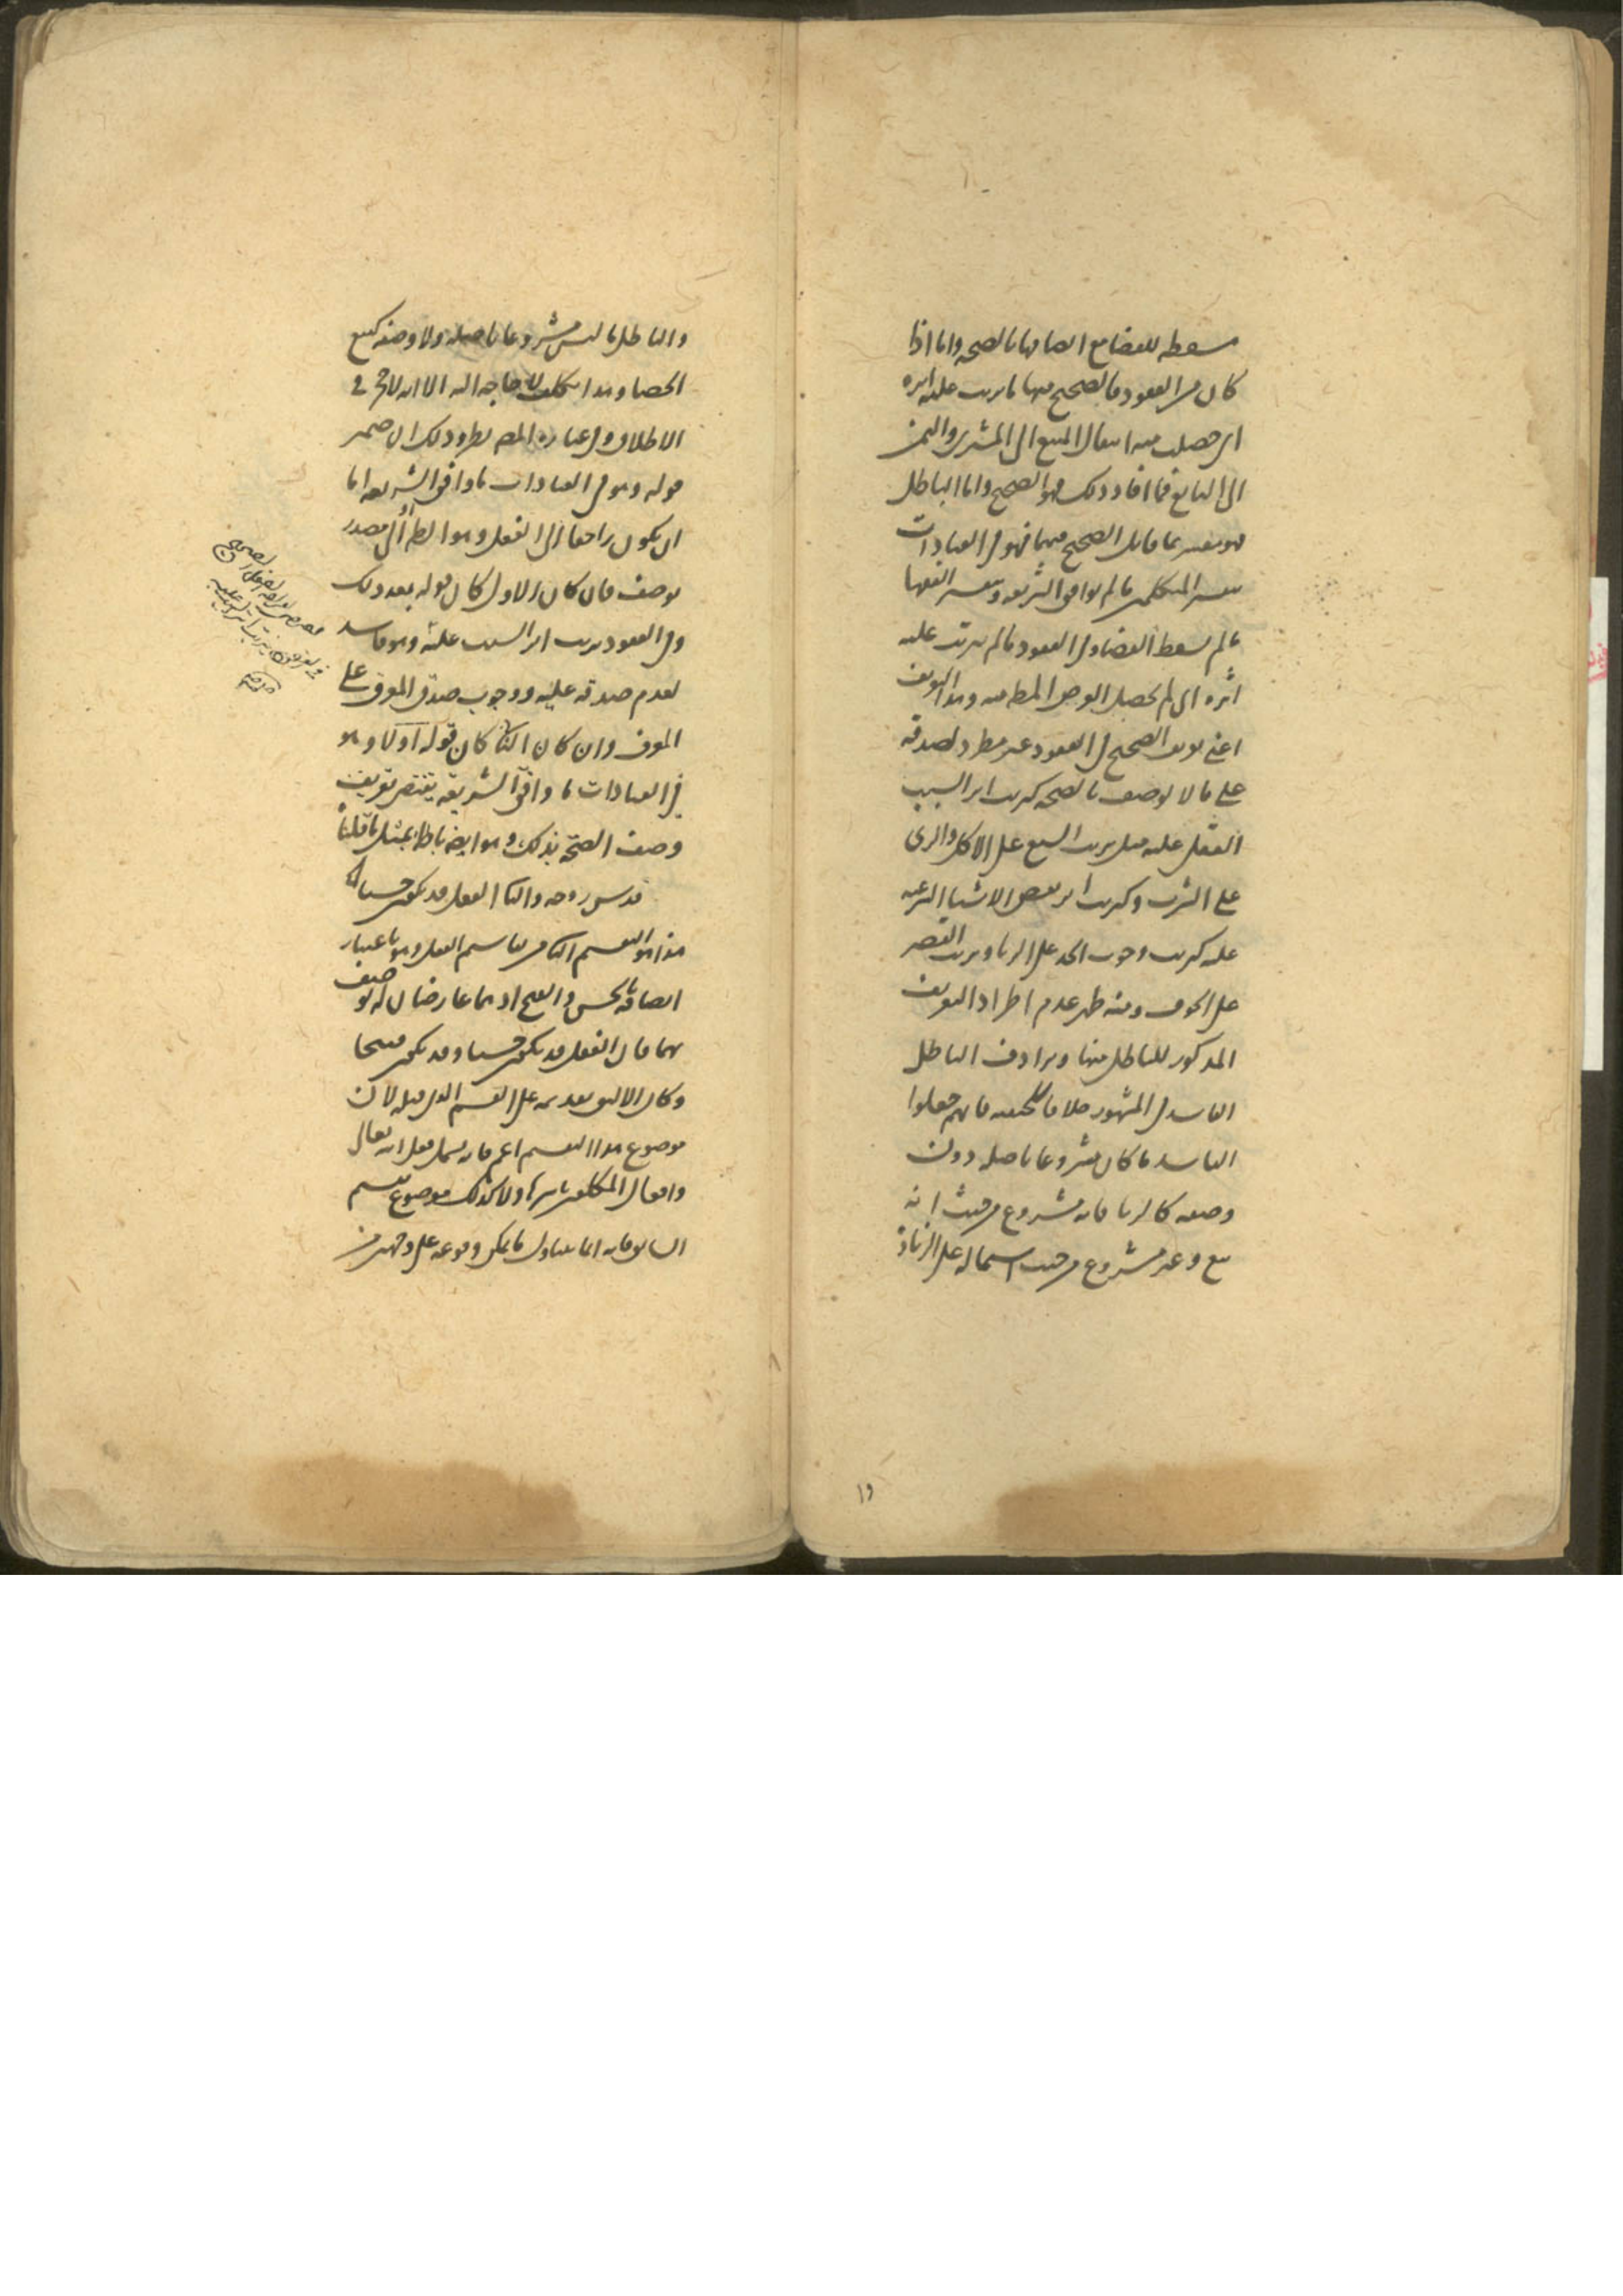 مسقطه للقضا مع اتصافها بالصحه واما اذا
كان من العقود فالصحيح منها ما يرتب عليه اثره
اى حصلت منه انتقال المبيع الى المشترى والثمن
الى البايع فما افاد ذلك فهو الصحيح واما الباطل
فهو يفسر بما قابل الصحيح فيهما فهو فى العبادات
بتفسير المتكلمين ما لم يوافق الشريعه وبتفسير الفقها
ما لم يسقط القضا وفى العقود ما لم يترتب عليه
اثره اى لم يحصل الغرض المط منه وهذا التعريف
اعنى تعريف الصحيح فى العقود غير مطرد لصدقه
على ما لا يوصف بالصحه كترتب اثر السبب
الفعلى عليه مثل ترتب الشبع على الاكل والرى
على الشرب وكترتب اثر بعض الاشيا الشرعيه
عليه كترتب وجوب الحد على الزنا وترتب القصر
على الخوف ومنه ظهر عدم اطراد التعريف
المذكور للباطل منها ويرادف الباطل
الفاسد فى المشهور خلافا للحنفيه فانهم جعلوا
الفاسد ما كان مشروعا باصله دون
وصفه كالربا فانه مشروع من حيث انه
بيع وغير مشروع من حيث اشتماله على الزياده
١٩
والباطل ما ليس مشروعا باصله ولا وصفه كبيع
الحصا وهذا تكلف لا حاجه اليه الا انه لا حجر فى
الاطلاق وفى عباره المص نظر وذلك ان ضمير
قوله وهو فى العبادات ما وافق الشريعه اما
ان يكون راجعا الى الفعل وهو الظ او الى مصدر
يوصف فان كان الاول كان قوله بعد ذلك
وفى العقود ترتب اثر السبب عليه وهو فاسد
لعدم صدقه عليه ووجوب صدق المعرف على
المعرف وان كان الثانى كان قوله اولا وهو
فى العبادات ما وافق الشريعه يقتضى تعريف
وصف الصحة بذلك وهو ايضا باطل بمثل ما قلنا
قدس روحه والثانى الفعل قد يكون حسنا
هذا هو التقسيم الثانى من تقاسيم الفعل وهو باعتبار
اتصافه بالحسن والقبح اذ هما عارضان له يوصف
بهما فان الفعل قد يكون حسنا وقد يكون قبيحا
وكان الاليق تقديمه على القسم الذى قبله لان
موضوع هذا التقسيم اعم فانه يشمل فعل الله تعالى
وافعال المكلفين باسرها ولا كذلك موضوع تقسيم
السابق فانه انما يتناول ما يمكن وقوعه على وجهين من